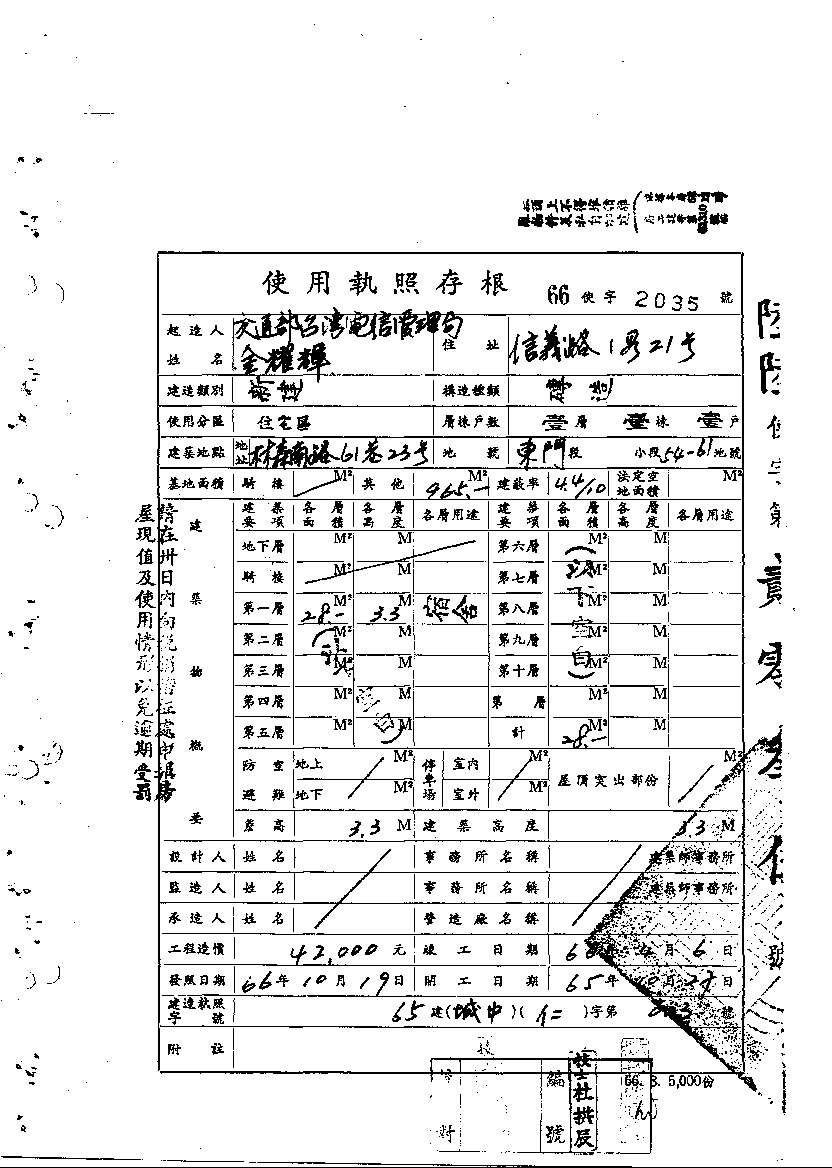 使用執照存根
66 使字 2035 號
起造人姓名 交通部台灣電信管理局 金耀輝 住址 信義路1段21號
建造類別 構造種類 磚造
使用分區 住宅區 層棟戶數 壹層 壹棟 壹戶
建築地點 地址 林森南路61巷23號 地號 東門段 小段54-61地號
基地面積 騎樓 M² 其他 965.- M² 建蔽率 4.4/10 法定空地面積 M²
建築物概要 建築要項 各層面積 各層高度 各層用途 建築要項 各層面積 各層高度 各層用途
地下層 M² M 第六層 M² M
騎樓 M² M 第七層 M² M
第一層 28.- M² 3.3 M 宿舍 第八層 M² M
第二層 M² M 第九層 M² M
第三層 M² M 第十層 M² M
第四層 M² M 第 層 M² M
第五層 M² M 計 28.- M² M
(以下空白)
防空避難 地上 M² 停車場 室內 M² 屋頂突出部份 M²
地下 M² 室外 M²
簷高 3.3 M 建築高度 3.3 M
設計人 姓名 事務所名稱 建築師事務所
監造人 姓名 事務所名稱 建築師事務所
承造人 姓名 營造廠名稱
工程造價 42,000 元 竣工日期 6 年 4 月 6 日
發照日期 66年10月19日 開工日期 65年 月 日
建造執照字號 65 建(城中)( )字第 號
附註
請在卅日內向稅捐稽征處申報房
屋現值及使用情形以免逾期受罰
66. 3. 5,000份
編號
技士杜拱辰
校對